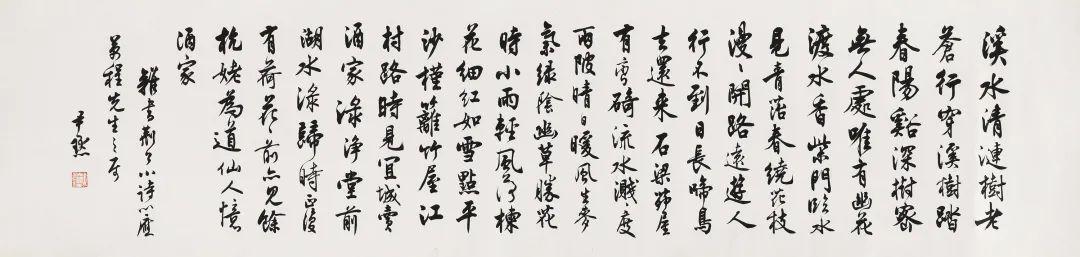 溪水清漣樹老
蒼行穿溪樹踏
春陽谿深樹密
無人處唯有幽花
渡水香柴門臨水
見青苔春繞花枝
漫〻開路遠遊人
行不到日長啼鳥
去還來石梁茅屋
有彎碕流水濺〻度
兩陂晴日暖風生麥
氣綠陰幽草勝花
時小雨輕風落楝
花細紅如雪點平
沙槿籬竹屋江
村路時見宜城賣
酒家淥淨堂前
湖水淥歸時正復
有荷花〻前亦見餘
杭姥為道仙人憶
酒家
雜書荊公小詩以應
程先生之屬
尹默